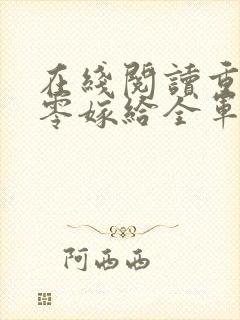 在綫閱讀重
零嫁給全軍
阿西西